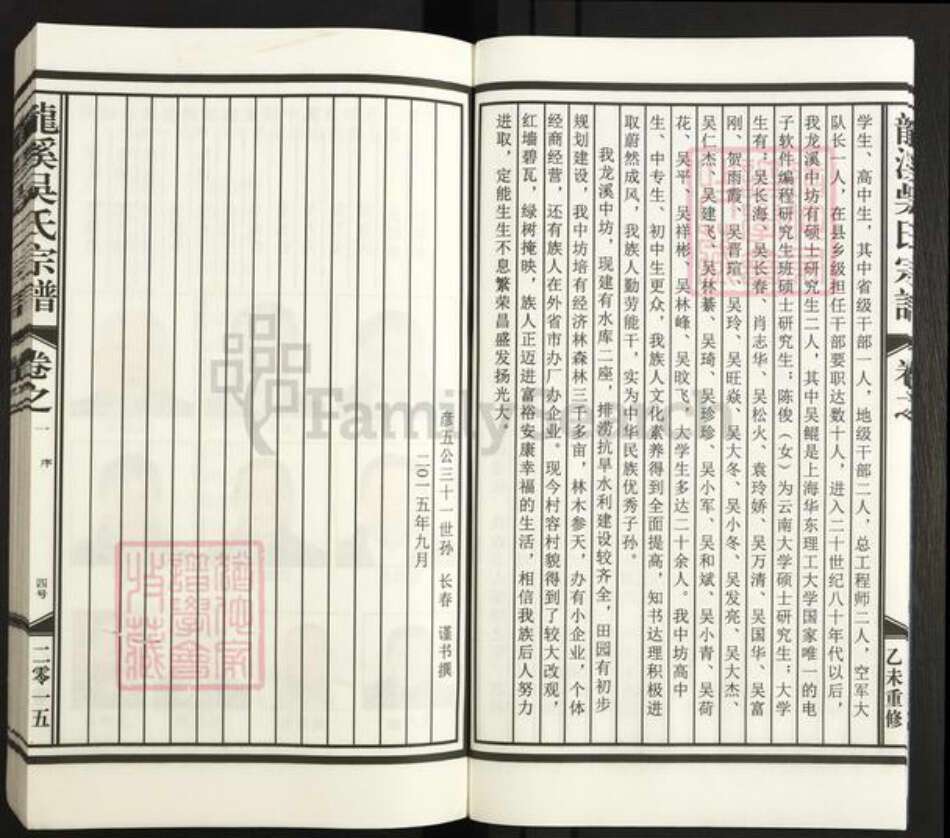 龍溪吴氏宗譜
乙未重修
学生、高中生，其中省级干部一人，地级干部二人，总工程师二人，空军大
队长一人，在县乡级担任干部要职达数十人，进入二十世纪八十年代以后，
我龙溪中坊有硕士研究生二人，其中吴鲲是上海华东理工大学国家唯一的电
子软件编程研究生班硕士研究生；陈俊（女）为云南大学硕士研究生；大学
生有：吴长海、吴长春、肖志华、吴松火、袁玲娇、吴万清、吴国华、吴富
刚、贺雨霞、吴晋瑄、吴玲、吴旺焱、吴大冬、吴小冬、吴发亮、吴大杰、
吴仁杰、吴建飞、吴林綦、吴琦、吴珍珍、吴小军、吴和斌、吴小青、吴荷
花、吴平、吴祥彬、吴林峰、吴旼飞，大学生多达二十余人。我中坊高中
生、中专生、初中生更众，我族人文化素养得到全面提高，知书达理积极进
取蔚然成风，我族人勤劳能干，实为中华民族优秀子孙。
我龙溪中坊，现建有水库二座，排涝抗旱水利建设较齐全，田园有初步
规划建设，我中坊培有经济林森林三千多亩，林木参天，办有小企业，个体
经商经营，还有族人在外省市办厂办企业。现今村容村貌得到了较大改观，
红墙碧瓦，绿树掩映，族人正迈进富裕安康幸福的生活，相信我族后人努力
进取，定能生生不息繁荣昌盛发扬光大。
彦五公三十一世孙 长春 谨书撰
二〇一五年九月
龍溪吴氏宗譜
卷之一
序
四号
二零一五
FamilySearch